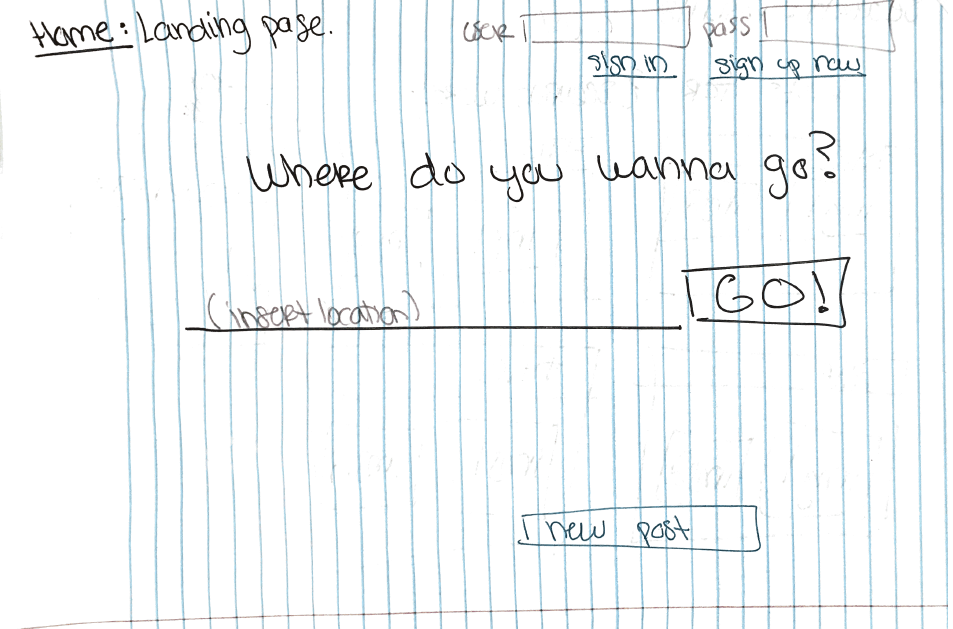 Home: Landing page.
user pass
sign in sign up now
Where do you wanna go?
(insert location) GO!
new post